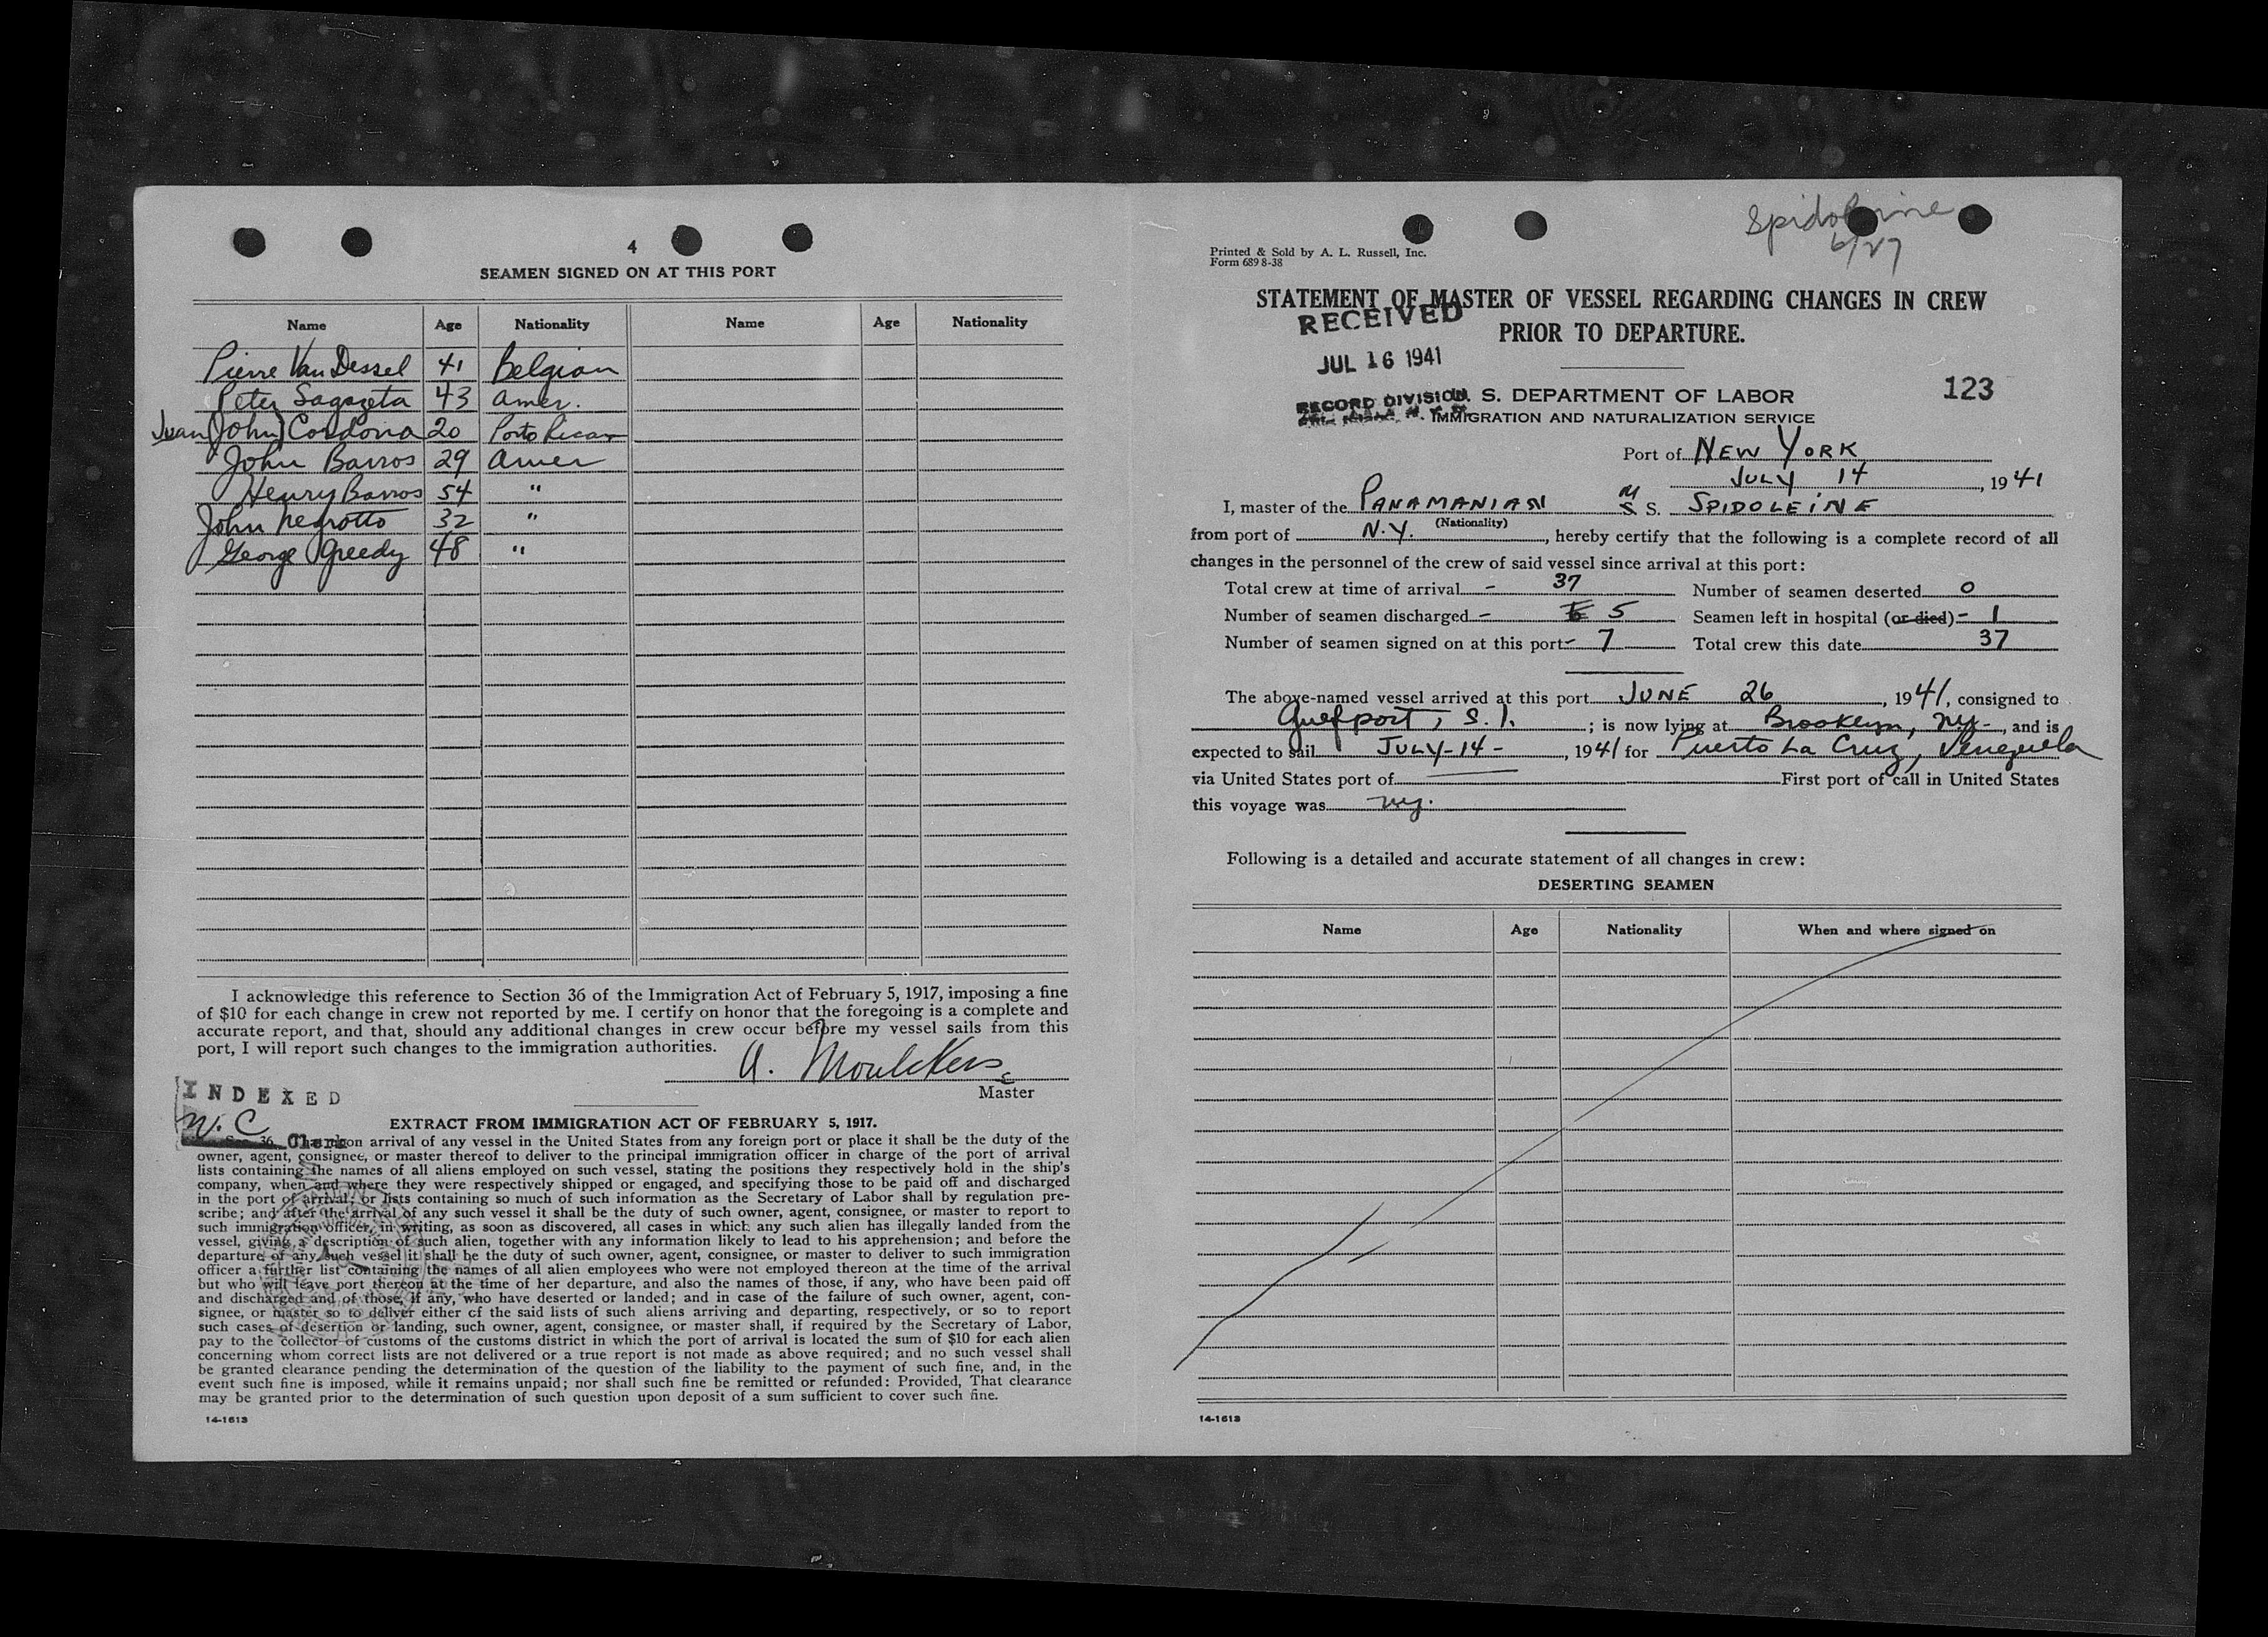 4
SEAMEN SIGNED ON AT THIS PORT
Name Age Nationality Name Age Nationality
Pierre Van Dessel 41 Belgian
Peter Sagazeta 43 Amer.
Juan (John) Cordona 20 Porto Rican
John Barros 29 Amer
Henry Barros 54 "
John Negrotto 32 "
George Greedy 48 "
I acknowledge this reference to Section 36 of the Immigration Act of February 5, 1917, imposing a fine
of $10 for each change in crew not reported by me. I certify on honor that the foregoing is a complete and
accurate report, and that, should any additional changes in crew occur before my vessel sails from this
port, I will report such changes to the immigration authorities.
A. Moulckers
Master
INDEXED
W. C
Clerk
EXTRACT FROM IMMIGRATION ACT OF FEBRUARY 5, 1917.
Sec. 36. That upon arrival of any vessel in the United States from any foreign port or place it shall be the duty of the
owner, agent, consignee, or master thereof to deliver to the principal immigration officer in charge of the port of arrival
lists containing the names of all aliens employed on such vessel, stating the positions they respectively hold in the ship's
company, when and where they were respectively shipped or engaged, and specifying those to be paid off and discharged
in the port of arrival; or lists containing so much of such information as the Secretary of Labor shall by regulation pre-
scribe; and after the arrival of any such vessel it shall be the duty of such owner, agent, consignee, or master to report to
such immigration officer, in writing, as soon as discovered, all cases in which any such alien has illegally landed from the
vessel, giving a description of such alien, together with any information likely to lead to his apprehension; and before the
departure of any such vessel it shall be the duty of such owner, agent, consignee, or master to deliver to such immigration
officer a further list containing the names of all alien employees who were not employed thereon at the time of the arrival
but who will leave port thereon at the time of her departure, and also the names of those, if any, who have been paid off
and discharged and of those, if any, who have deserted or landed; and in case of the failure of such owner, agent, con-
signee, or master so to deliver either of the said lists of such aliens arriving and departing, respectively, or so to report
such cases of desertion or landing, such owner, agent, consignee, or master shall, if required by the Secretary of Labor,
pay to the collector of customs of the customs district in which the port of arrival is located the sum of $10 for each alien
concerning whom correct lists are not delivered or a true report is not made as above required; and no such vessel shall
be granted clearance pending the determination of the question of the liability to the payment of such fine, and, in the
event such fine is imposed, while it remains unpaid; nor shall such fine be remitted or refunded: Provided, That clearance
may be granted prior to the determination of such question upon deposit of a sum sufficient to cover such fine.
14-1613
6/27
Printed & Sold by A. L. Russell, Inc.
Form 689 8-38
STATEMENT OF MASTER OF VESSEL REGARDING CHANGES IN CREW
PRIOR TO DEPARTURE.
RECEIVED
JUL 16 1941
RECORD DIVISION
S. DEPARTMENT OF LABOR
IMMIGRATION AND NATURALIZATION SERVICE
123
Port of NEW YORK
JULY 14, 1941
I, master of the PANAMANIAN M S. SPIDOLEINE
(Nationality)
from port of N.Y., hereby certify that the following is a complete record of all
changes in the personnel of the crew of said vessel since arrival at this port:
Total crew at time of arrival - 37 Number of seamen deserted 0
Number of seamen discharged - 5 Seamen left in hospital (or died) - 1
Number of seamen signed on at this port - 7 Total crew this date 37
The above-named vessel arrived at this port JUNE 26, 1941, consigned to
Gulfport, S.I.; is now lying at Brooklyn, NY-, and is
expected to sail JULY-14-, 1941 for Puerto La Cruz, Venezuela
via United States port of — First port of call in United States
this voyage was NY.
Following is a detailed and accurate statement of all changes in crew:
DESERTING SEAMEN
Name Age Nationality When and where signed on
14-1613